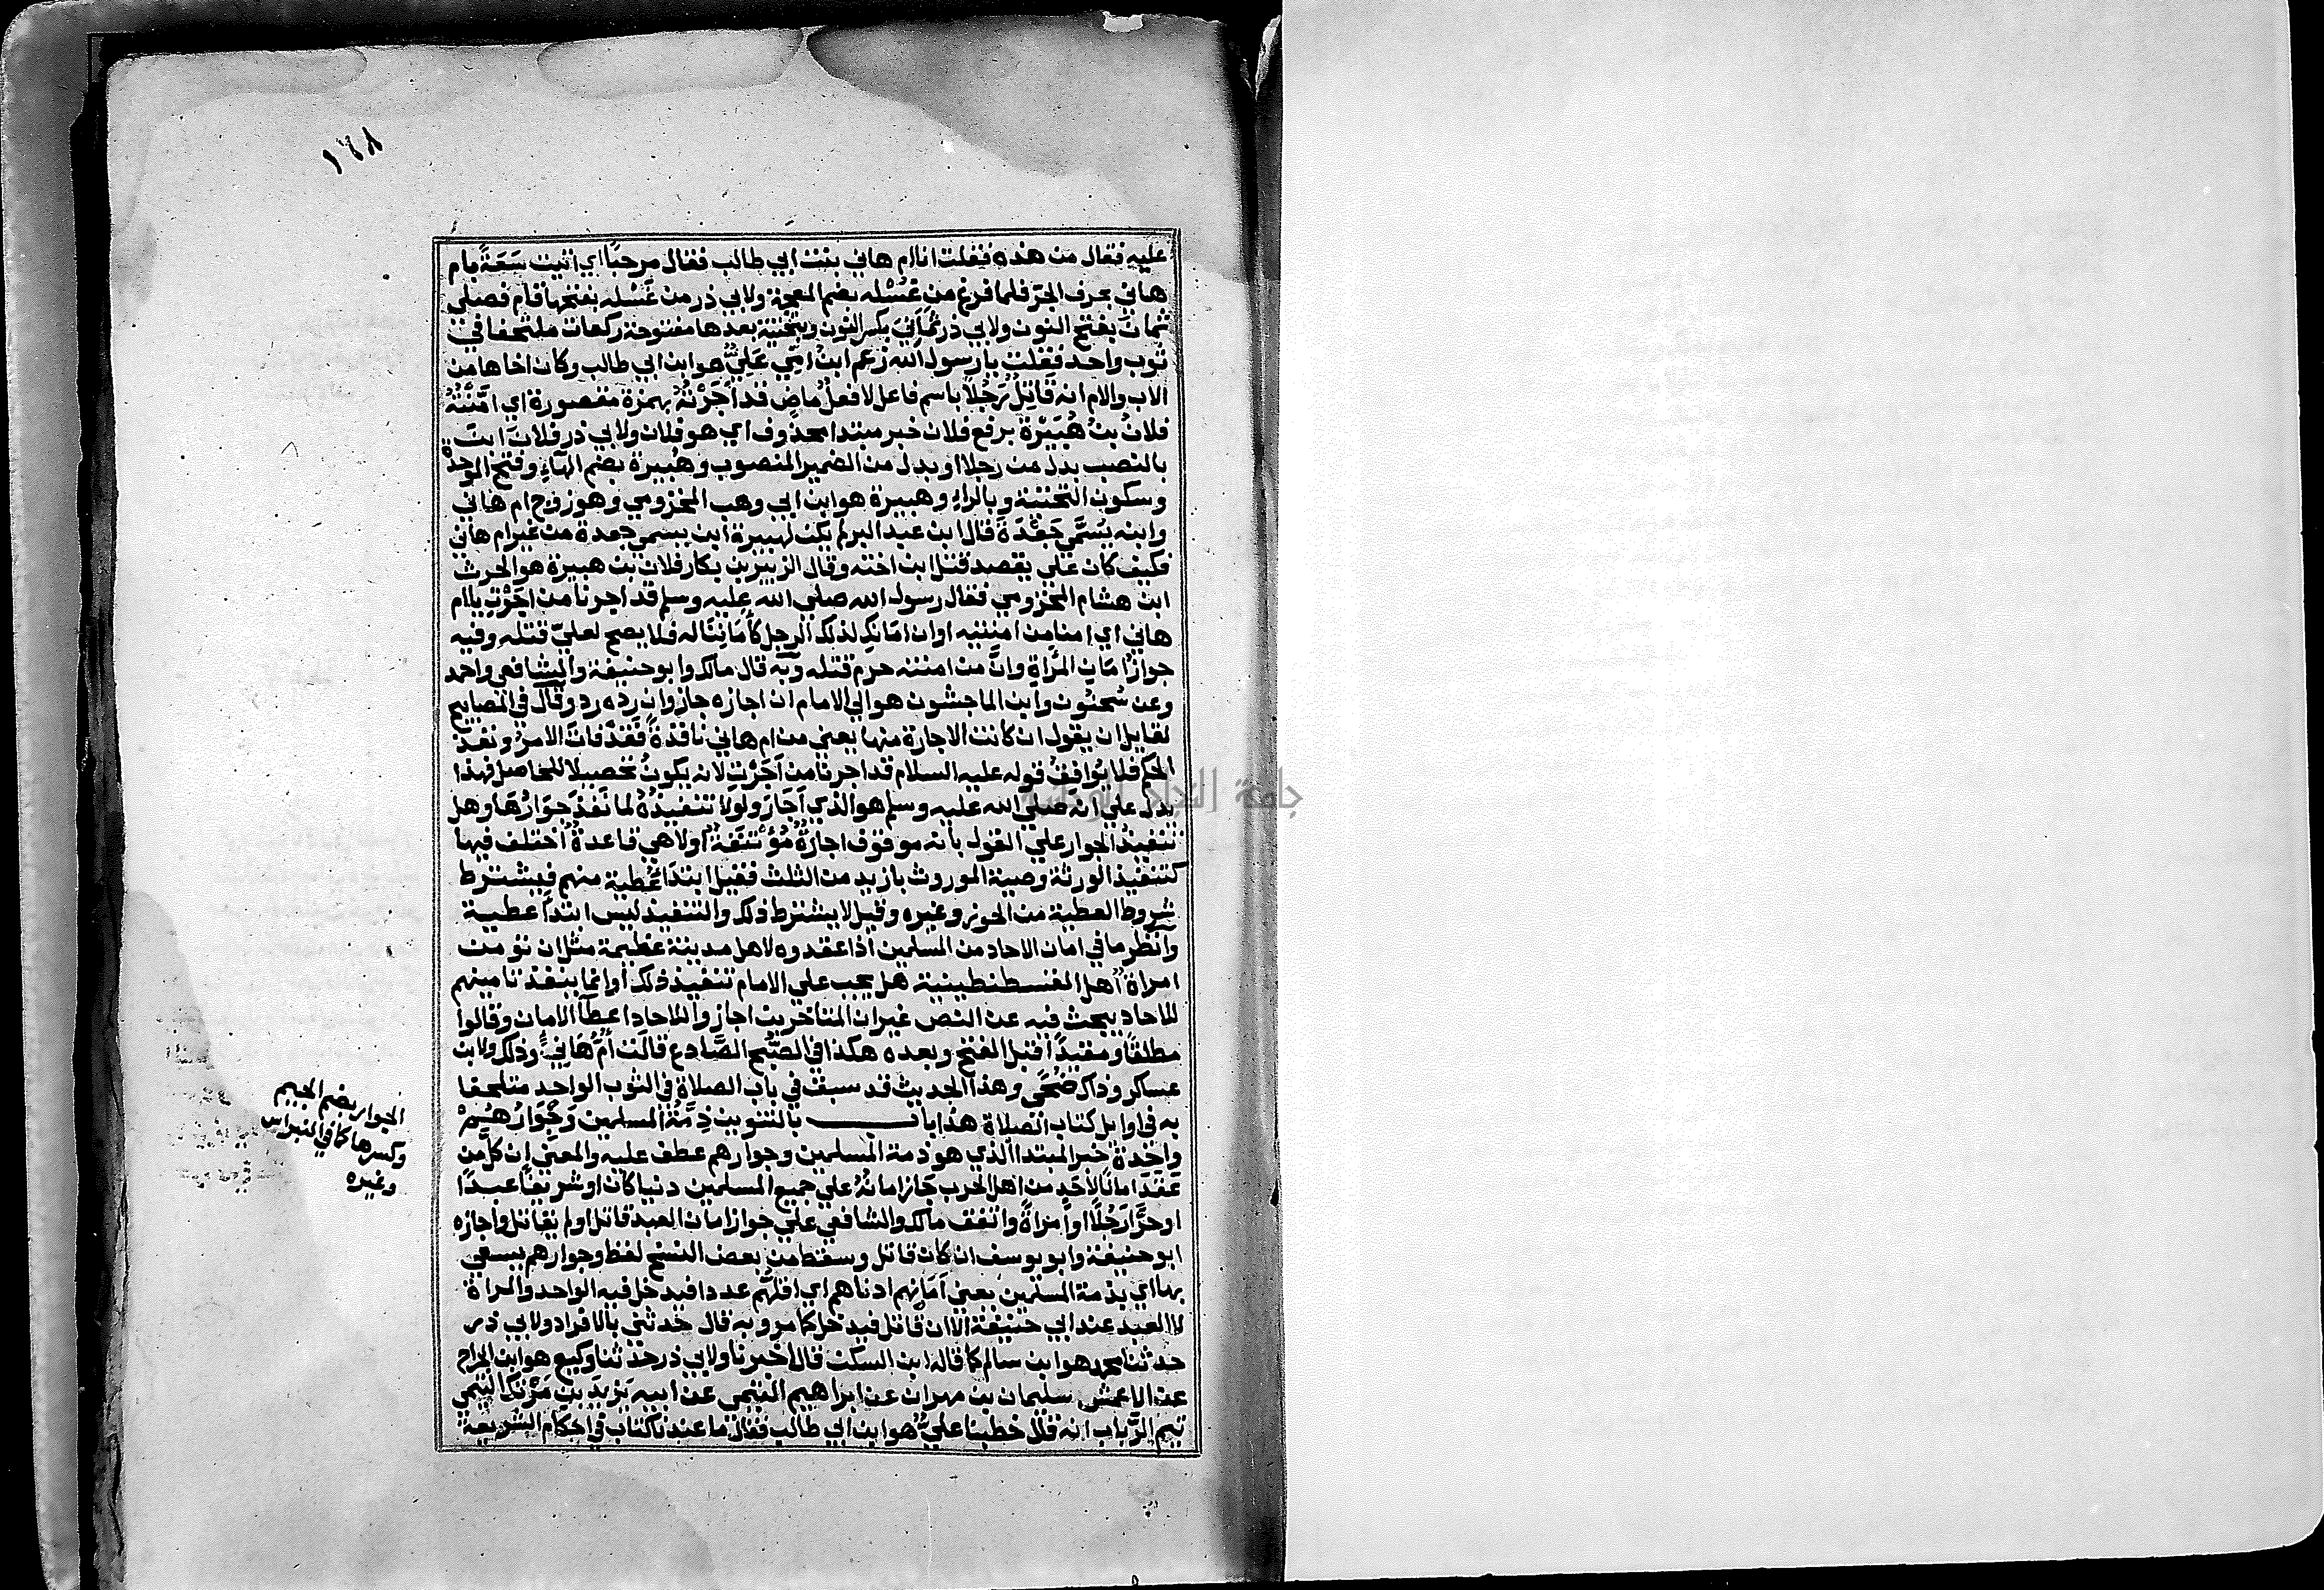 ١٦٨
عليه فقال من هذه فقلت انا ام هاني بنت ابي طالب فقال مرحبًا اي اتيت سَعَةً يام
هاني بحرف الجرّ فلما فرغ من غُسْله بضم المعجة ولابي ذر من غَسْله بفتحها قام فصلي
ثمانَ بفتح النون ولابي ذر ثمانيَ بكسر النون وبتحتية بعدها مفتوحة ركعات ملتحفا في
ثوب واحد فقلت يا رسول الله زعم ابن امي عَلِيٌّ هو ابن ابي طالب وكان اخاها من
الاب والام انه قَاتِلٌ رَجُلاً باسم فاعل لا فعلُ مَاضٍ قد أَجَرْتُهُ بهمزة مقصورة اي امَّنْتُهُ
فلانُ بنُ هُبَيْرَةَ برفع فلان خبر مبتدا محذوف اي هو فلان ولابي ذر فلانَ ابنَ
بالنصب بدل من رجلا او بدل من الضمير المنصوب وهُبيرة بضم الهآءِ وفتح الموحدْ
وسكون التحتية وبالراءِ وهبيرة هو ابن ابي وهب المخزومي وهو زوج ام هاني
وابنه يُسَمَّي جَعْدَةَ قال ابن عبد البر لم يكن لهبيرة ابن يسمي جعدة من غير ام هاني
فكيف كان علي يقصد قتل ابن اخته وقال الزبير بن بكار فلان بن هبيرة هو الحرث
ابن هشام المخزومي فقال رسول الله صلي الله عليه وسلم قد اجرنا من اجَرْتِ ياام
هاني اي امنا من امنتيه او ان امانكِ لذلك الرجل كأَمَانِنَا له فلا يصح لعليّ قتله وفيه
جوازُ امَان المرأة وانَّ من امنته حرم قتله وبه قال مالك وابو حنيفة والشافعي واحمد
وعن سُحنُون وابن الماجشون هو الي الامام ان اجازه جاز وان رده رد وقال في المصابيح
لقايل ان يقول ان كانت الاجارة منها يعني من ام هاني نافذةً فَقَدْ فَاتَ الامرُ ونفذ
الحكم فلا يُوافقُ قوله عليه السلام قد اجرنا من اَجَرْتِ لانه يكونُ تحصيلا للحاصل فهذا
يدل علي انه صلي الله عليه وسلم هو الذي اَجَارَ ولولا تنفيذُهُ لما نَفَذَ جِوَارُهَا وهل
تنفيذُ الجوار علي القول بانه موقوف اجارةٌ مُؤْتَنَفَةٌ اولا هي قاعدةٌ اختلف فيها
كتنفيذ الورثة وصية الموروث بازيد من الثلث فقيل ابتدَآ عَطية منهم فيشترط
شروط العطية من الحوز وغيره وقيل لا يشترط ذلك والتنفيذ ليس ابتدآ عطية
وانظر ما في امان الاحاد من المسلمين اذا عقدوه لاهل مدينة عظيمة مثل ان تومن
امراة اهل القسطنطينية هل يجب علي الامام تنفيذ ذلك أو انما ينفذ تامينهم
للاحاد يبحث فيه عن النص غير ان المتاخرين اجازوا للاحاد اعطآ الامان وقالوا
مطلقا ومقيدًا قبل الفتح وبعده هكذا في الصُّبْح الصَّادع قالت أُمُّ هَانِيٍ وذلك ولابن
عساكر وذاك ضُحًي وهذا الحديث قد سبق في باب الصلاة في الثوب الواحد متلحفا
به في اوايل كتاب الصلاة هذا باب بالتنوين ذِمَّةُ المسلمين وَجِوَارُهُمْ
واحِدَةٌ خبر المبتدا الذي هو ذمة المسلمين وجوارهم عطف عليه والمعني ان كلَّ من
عَقَدَ امانًا لِاَحَدٍ من اهل الحرب جَازَ امانُهُ علي جميع المسلمين دنيا كان او شريفًا عبدًا
او حرًّا رَجُلاً او امْراةً واتفق مالك والشافعي علي جواز امان العبد قاتل او لم يقاتل واجازه
ابو حنيفة وابو يوسف ان كان قاتل وسقط من بعض النسخ لفظ وجوارهم يسعي
بها اي بذمة المسلمين يعني اَمَانِهم ادناهم اي اقلُّهم عددا فيدخل فيه الواحد والمراة
لا العبد عند ابي حنيفة الا ان قاتل فيدخل كما مر وبه قال حدثني بالافراد ولابي ذر
حدثنا محمد هو ابن سالم كما قاله ابن السكن قال اخبرنا ولابي ذر حدثنا وكيع هو ابن الجراح
عن الاعمش سليمان بن مهران عن ابراهيم التيمي عن ابيه يَزِيدَ بن شريك التيمي
تيم الرِّباب انه قال خطبنا عليٌّ هو ابن ابي طالب فقال ما عندنا كتاب في احكام الشريعة
الجوار بضم الجيم
وكسرها كما في النبراس
وغيره
جامعة النجاح الوطنية